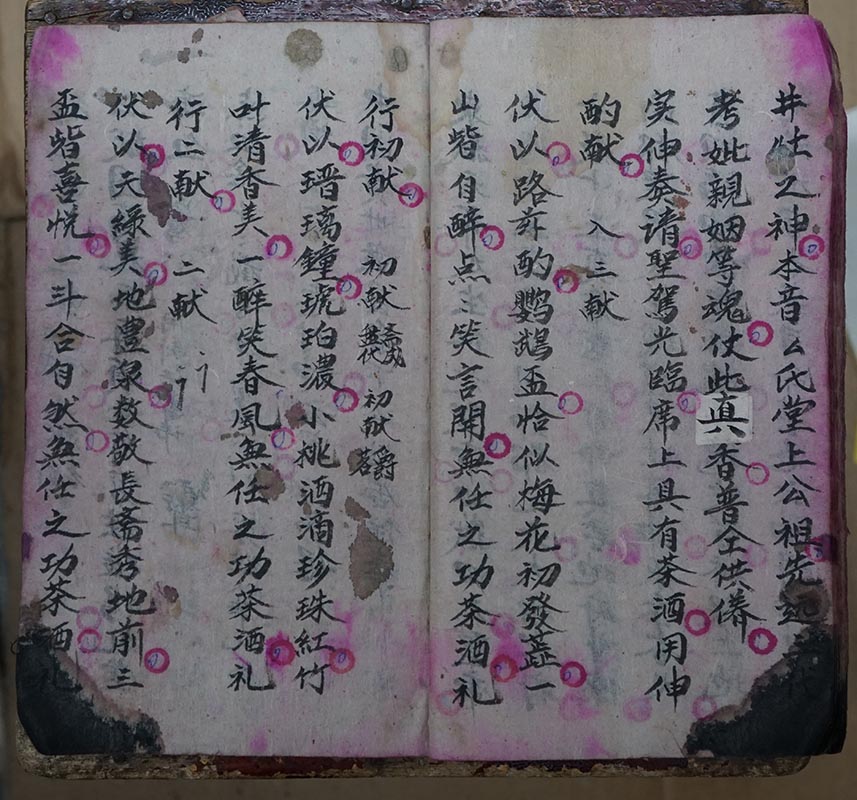 井灶之神本音厶氏堂上公祖先远代
考妣親姻等魂仗此真香普仝供俻
实伸奏請聖駕光臨席上具有茶酒用伸
酌献 入三献
伏以路斚酌鹦鵡盃恰似梅花初發蕋一
山皆自醉点之笑言開無任之功茶酒礼
行初献 初献 初献爵
伏以瑨璃鐘琥珀濃小桃酒滴珍珠紅竹
叶清香美一醉笑春風無任之功茶酒礼
行二献 二献
伏以天緑美地豊泉数敬長斋秀地前三
盃皆喜悦一斗合自然無任之功茶酒礼